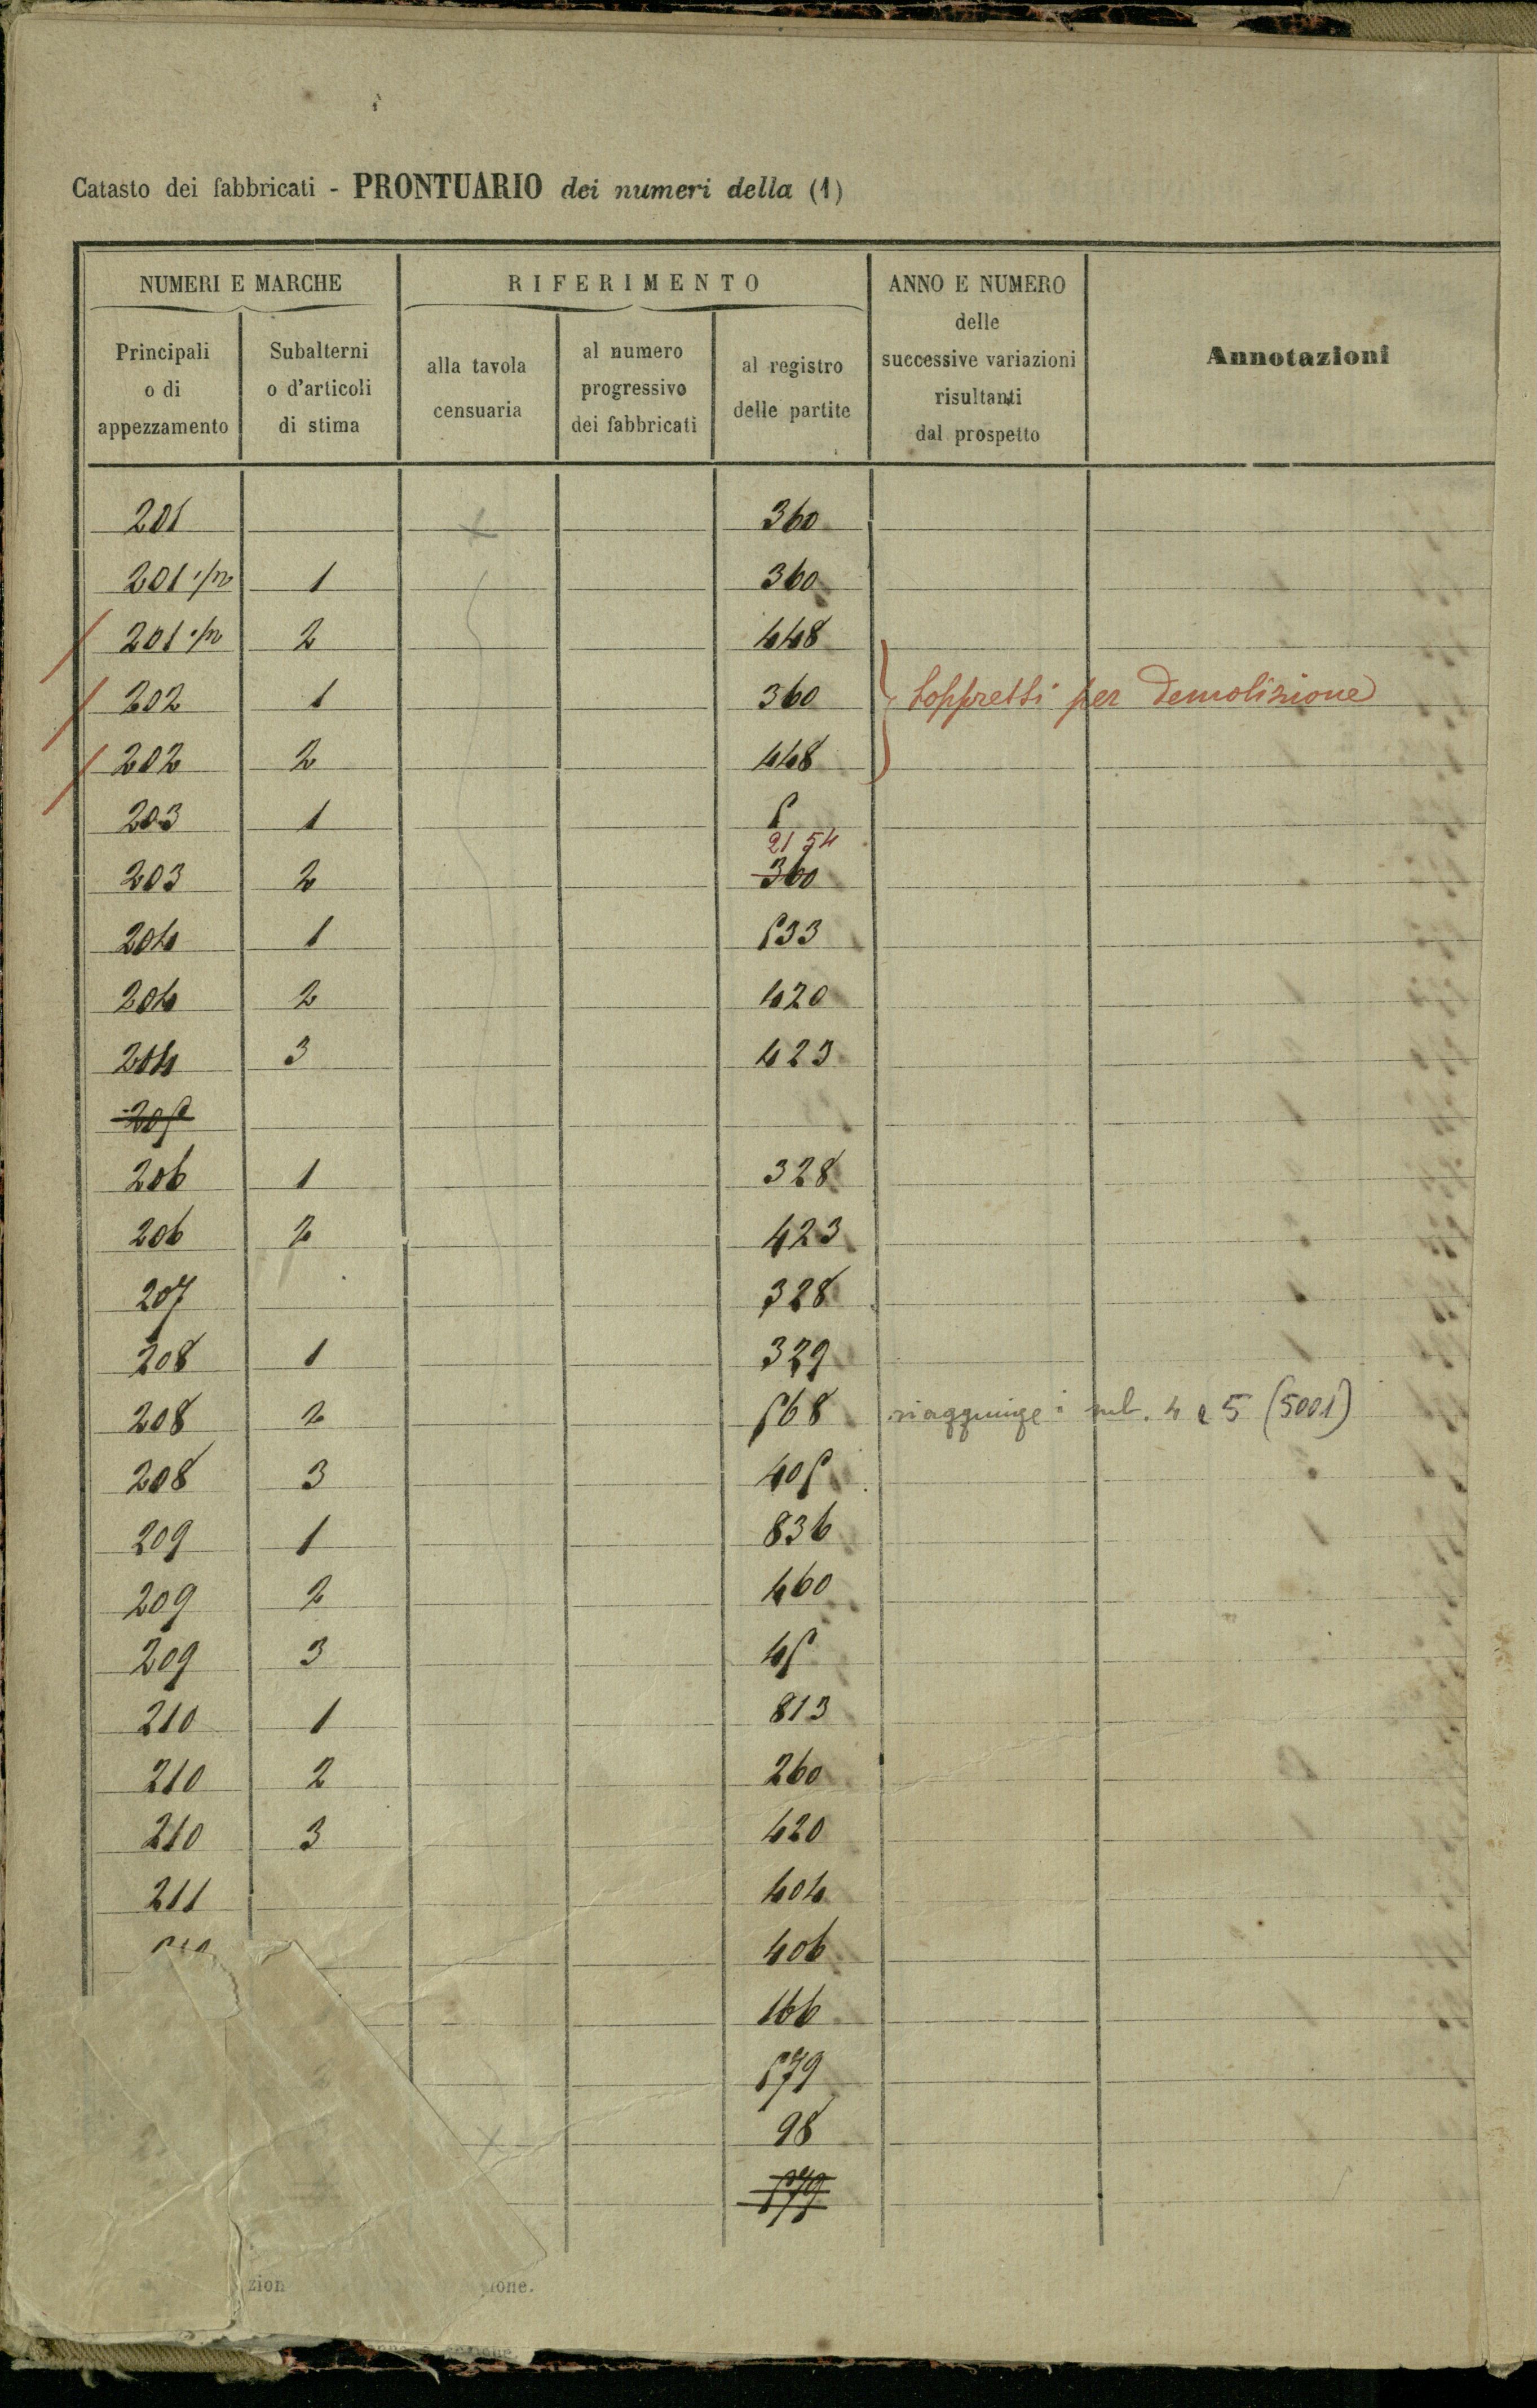 Catasto dei fabbricati - PRONTUARIO dei numeri della (1)
NUMERI E MARCHE
RIFERIMENTO
ANNO E NUMERO
delle
successive variazioni
risultanti
dal prospetto
Annotazioni
Principali
o di
appezzamento
Subalterni
o d'articoli
di stima
alla tavola
censuaria
al numero
progressivo
dei fabbricati
al registro
delle partite
201 360
201 1/2 1 360
201 1/2 2 448
202 1 360 Soppressi per demolizione
202 2 448
203 1 5
2154
203 2 360
204 1 533
204 2 420
204 3 423
205
206 1 328
206 2 423
207 328
208 1 329
208 2 568 si aggiunge i sub. 4 e 5 (5001)
208 3 405
209 1 836
209 2 460
209 3 45
210 1 813
210 2 260
210 3 420
211 404
406
166
579
98
579